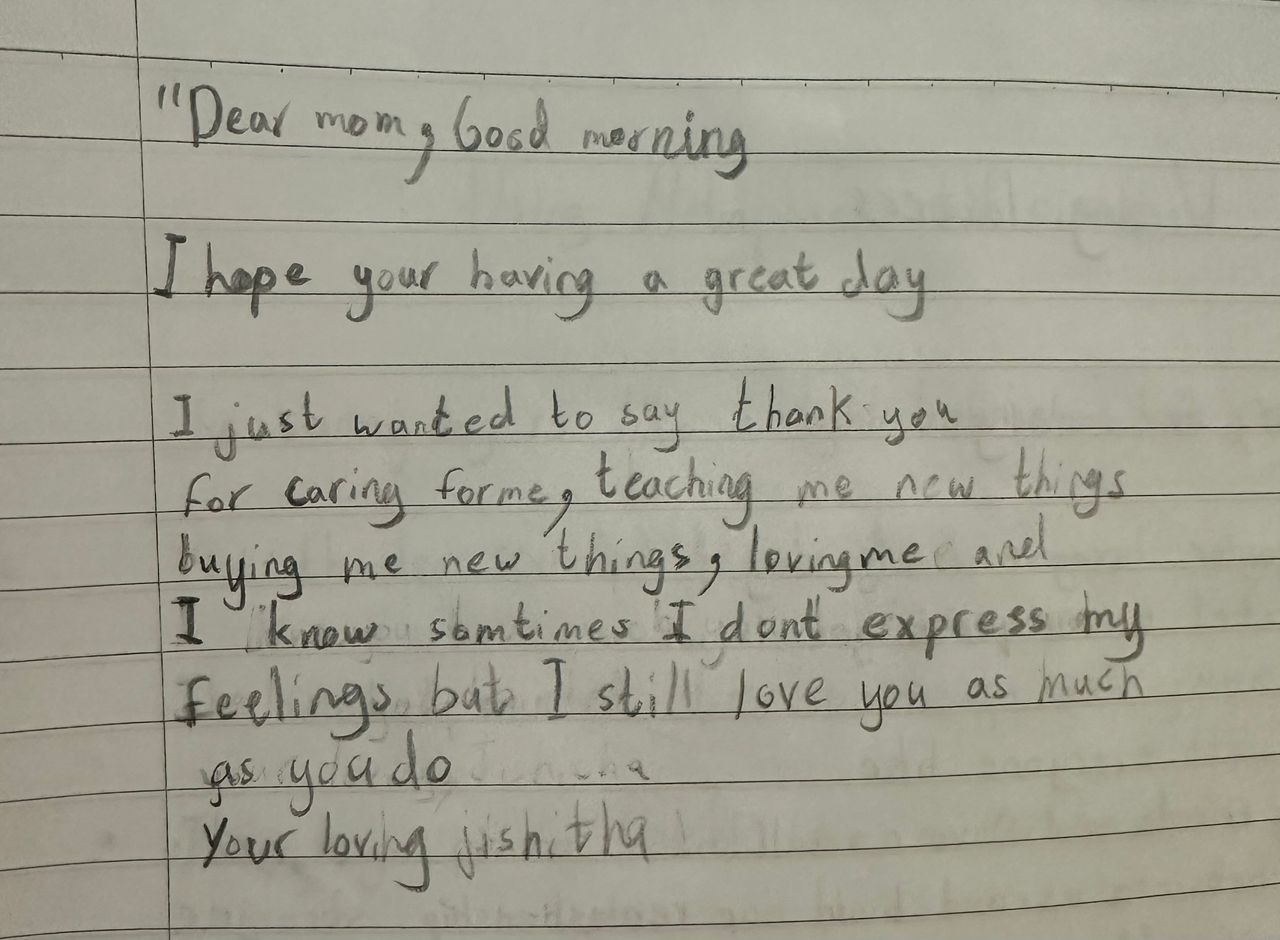 "Dear mom, Good morning
I hope your having a great day
I just wanted to say thank you
for caring forme, teaching me new things
buying me new things, lovingme and
I know somtimes I dont express my
feelings but I still love you as much
as you do
Your loving jishitha